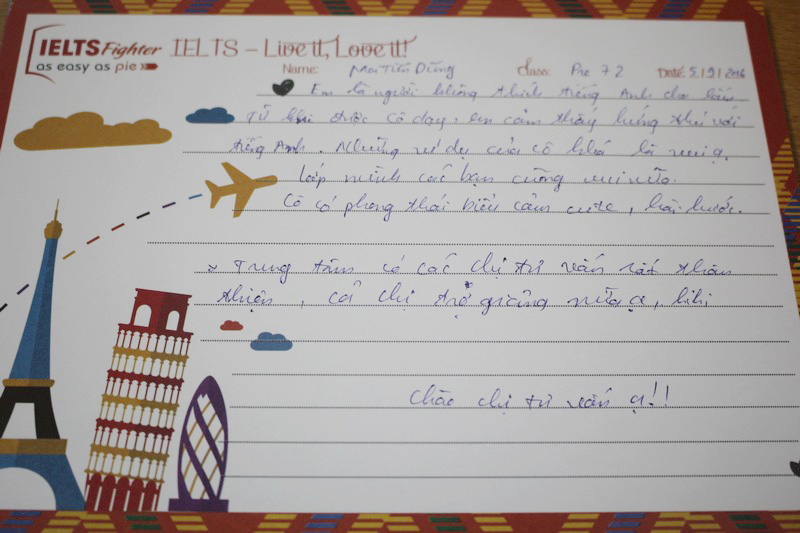 IELTS Fighter
as easy as pie
IELTS – Live it, Love it!
Name: Mai Tiến Dũng Class: Pre 72 Date: 5/9/2016
Em là người không thích tiếng Anh cho lắm
Từ khi được cô dạy, em cảm thấy hứng thú với
tiếng Anh. Những ví dụ của cô khá là vui ạ.
Lớp mình các bạn cũng vui nữa.
Cô có phong thái biểu cảm cute, hài hước.
* Trung tâm có các chị tư vấn rất thân
thiện, cả chị trợ giảng nữa ạ, hihi
Chào chị tư vấn ạ!!